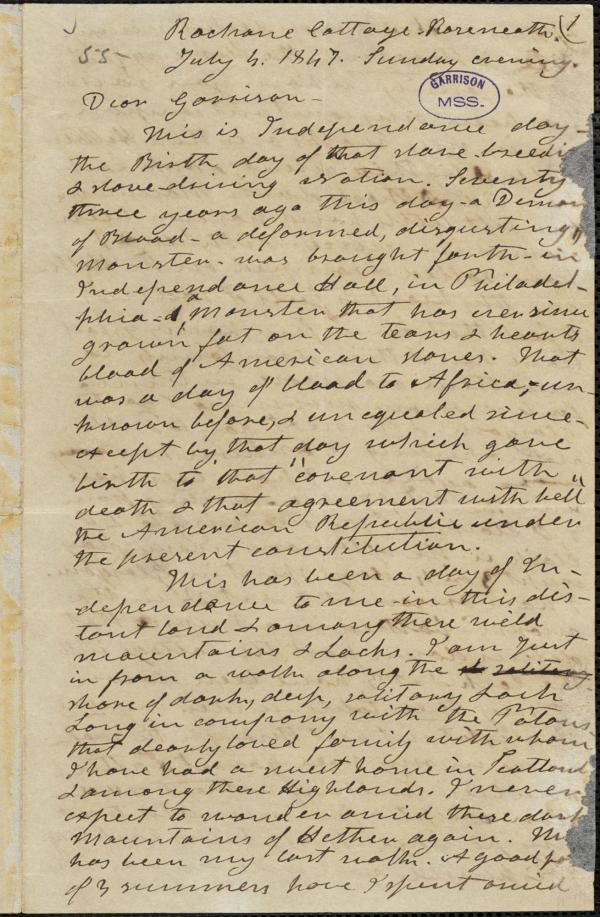 Rochane Cottage. Roseneath. (1
55-
July 4. 1847. Sunday evening.
GARRISON
MSS.
Dear Garrison-
This is Independence day-
the Birth day of that slave-breedi
& slave-driving Nation. Seventy
three years ago this day-a Demon
of Blood-a deformed, disgusting
Monster-was brought forth-in
Independence Hall, in Philadel-
phia-a Monster that has ever since
grown fat on the tears & hearts
blood of American slaves. That
was a day of blood to Africa, un-
known before, & unequaled since-
except by that day which gave
birth to that "covenant with
death & that agreement with hell"
the American Republic under
the present constitution.
This has been a day of In-
dependence to me in this dis-
tant land & among these wild
mountains & Lochs. I am just
in from a walk along the
shore of dark, deep, solitary Loch
Long in company with the Patons
that dearly loved family with whom
I have had a sweet home in Scotland
& among these Highlands. I never
expect to wander amid these dark
Mountains of Hether again. This
has been my last walk. A good
of 3 summers have I spent amid